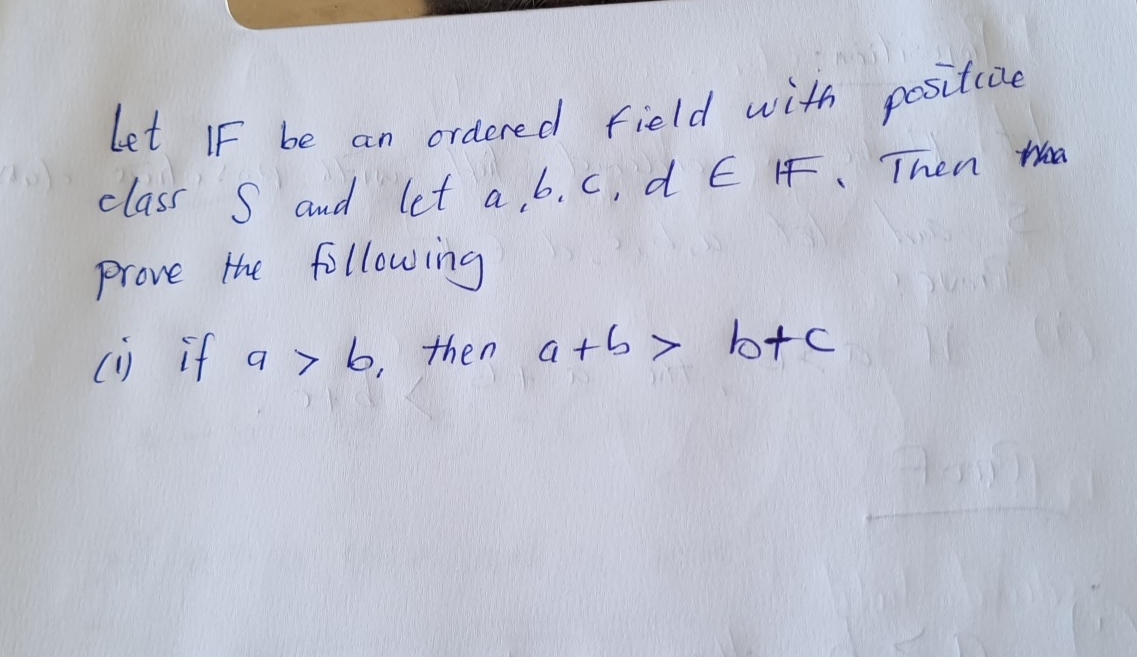 Let IF be an ordered field with positive
class S and let a, b, c, d ∈ IF. Then
prove the following
(i) if a > b, then a+b > b+c